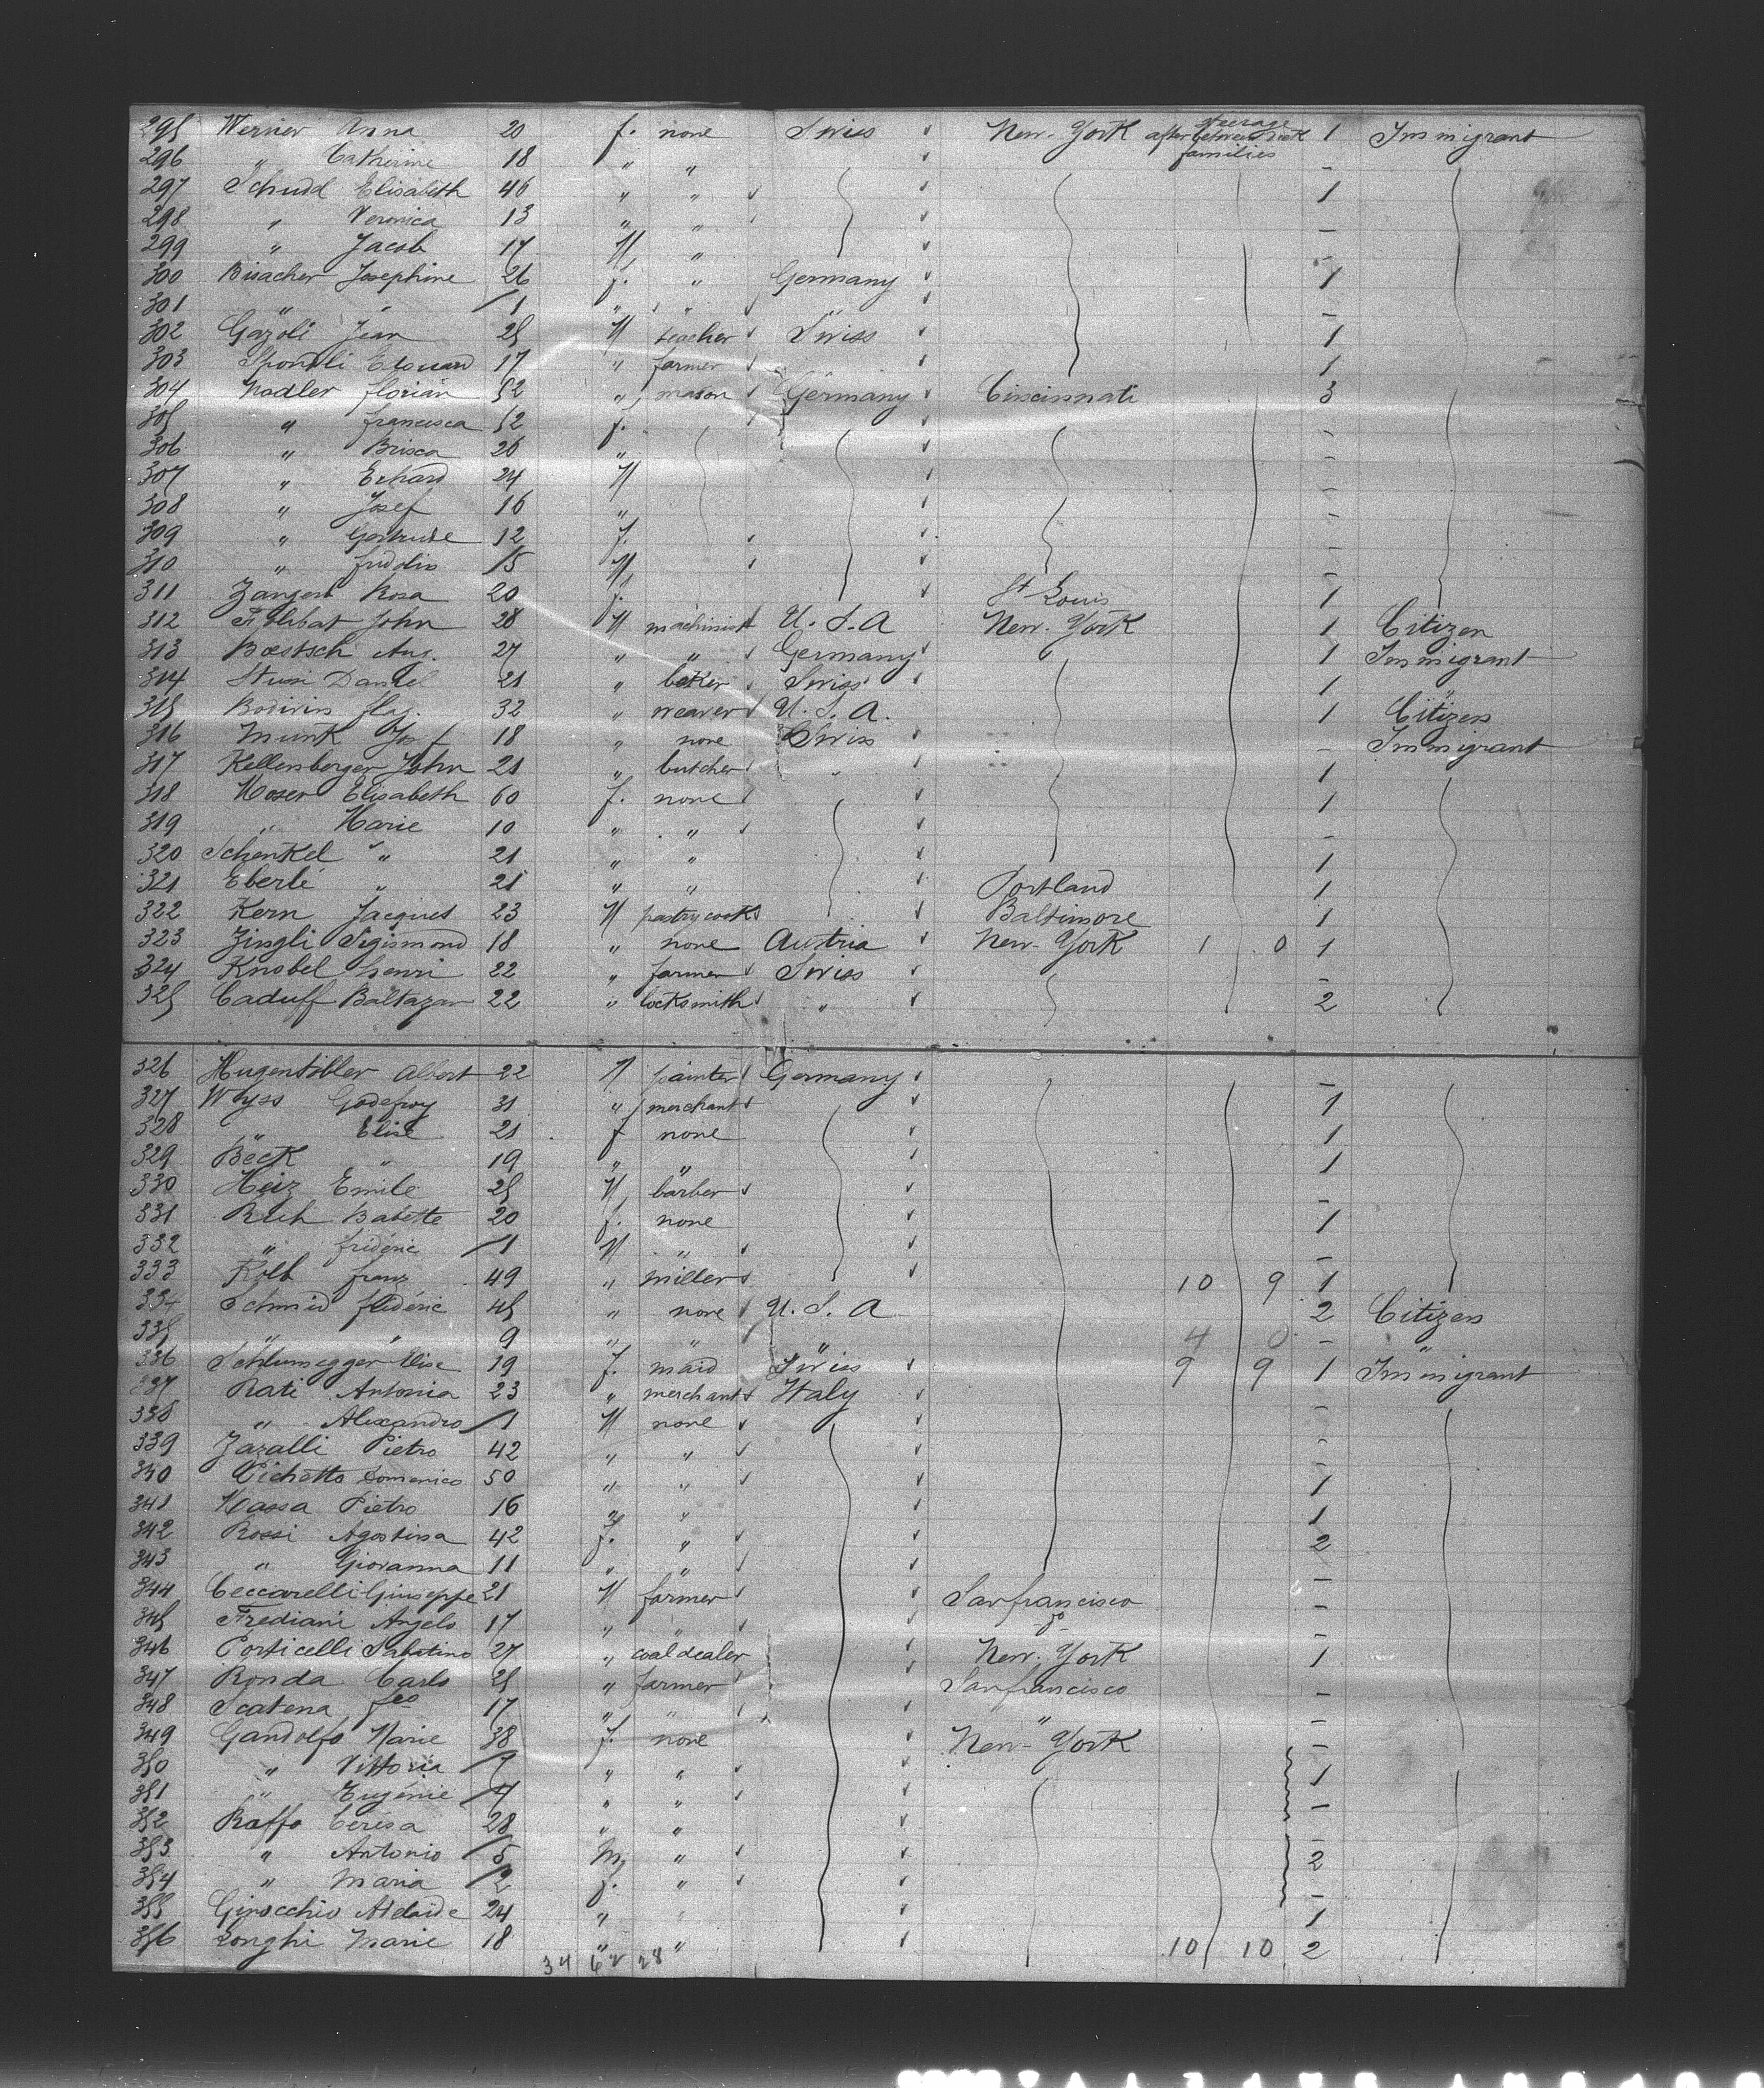 295 Werner Anna 20 f. none Swiss New-York steerage after between deck families 1 Immigrant
296 " Catherine 18 " " -
297 Schudd Elisabeth 46 " " 1
298 " Veronica 13 " " -
299 " Jacob 17 M " -
300 Bisacher Josephine 26 f. " Germany 1
301 " " /1 " " " -
302 Gazoli Jean 25 M teacher Swiss 1
303 Spondli Edouard 17 " farmer 1
304 Nadler florian 52 " mason Germany Cincinnati 3
305 " francisca 52 f. -
306 " Brisca 26 " -
307 " Erhard 24 M -
308 " Josef 16 " -
309 " Gertrude 12 f. -
310 " fridolin 15 M -
311 Zangerl Rosa 20 f. St Louis 1
312 John 28 M machinist U.S.A New-York 1 Citizen
313 Boetsch Aug. 27 " " Germany " 1 Immigrant
314 Stussi Daniel 21 " baker Swiss 1 "
315 32 " weaver U.S.A. 1 Citizen
316 Munk Josef 18 " none Swiss - Immigrant
317 Kellenberger John 21 " butcher " 1
318 Moser Elisabeth 60 f. none 1
319 " Marie 10 " " -
320 Schenkel " 21 " " 1
321 Eberlé " 21 " " Portland 1
322 Kern Jacques 23 M pastrycook Baltimore 1
323 Zingli Sigismond 18 " none Austria New-York 1 0 1
324 Knobel henri 22 " farmer Swiss -
325 Caduff Baltazar 22 " locksmith " 2
326 Hugentobler Albert 22 M painter Germany -
327 Wyss Godefroy 31 " merchant 1
328 " Elise 21 f none 1
329 Beck " 19 " " 1
330 Heiz Emile 25 M barber -
331 Rich Babette 20 f. none 1
332 " frideric /1 M " -
333 Kolb franz 49 " miller 10 9 1
334 Schmid frideric 45 " none U.S.A 2 Citizen
335 " " 9 " " " 4 0 - "
336 Schlunegger Elise 19 f. maid Swiss 9 9 1 Immigrant
337 Rati Antonia 23 " merchant Italy -
338 " Alexandro /1 M none -
339 Zazalli Pietro 42 " " -
340 Pichetto Domenico 50 " " 1
341 Massa Pietro 16 " " 1
342 Rossi Agostina 42 f. " 2
343 " Giovanna 11 " " -
344 Ceccarelli Giuseppe 21 M farmer San francisco -
345 Frediani Angelo 17 " " do -
346 Porticelli Sabatino 27 " coal dealer New-York 1
347 Ronda Carlo 25 " farmer San francisco -
348 Scatena 17 " " " -
349 Gandolfo Marie 38 f. none New-York -
350 " Vittoria /9 " " 1
351 " Eugénie /4 " " -
352 Raffo Cerésa 28 " " -
353 " Antonio /5 M " 2
354 " Maria /2 f. " -
355 Ginocchio Adelaide 24 " " 1
356 Longhi Marie 18 " " 10 10 2
34 62 28